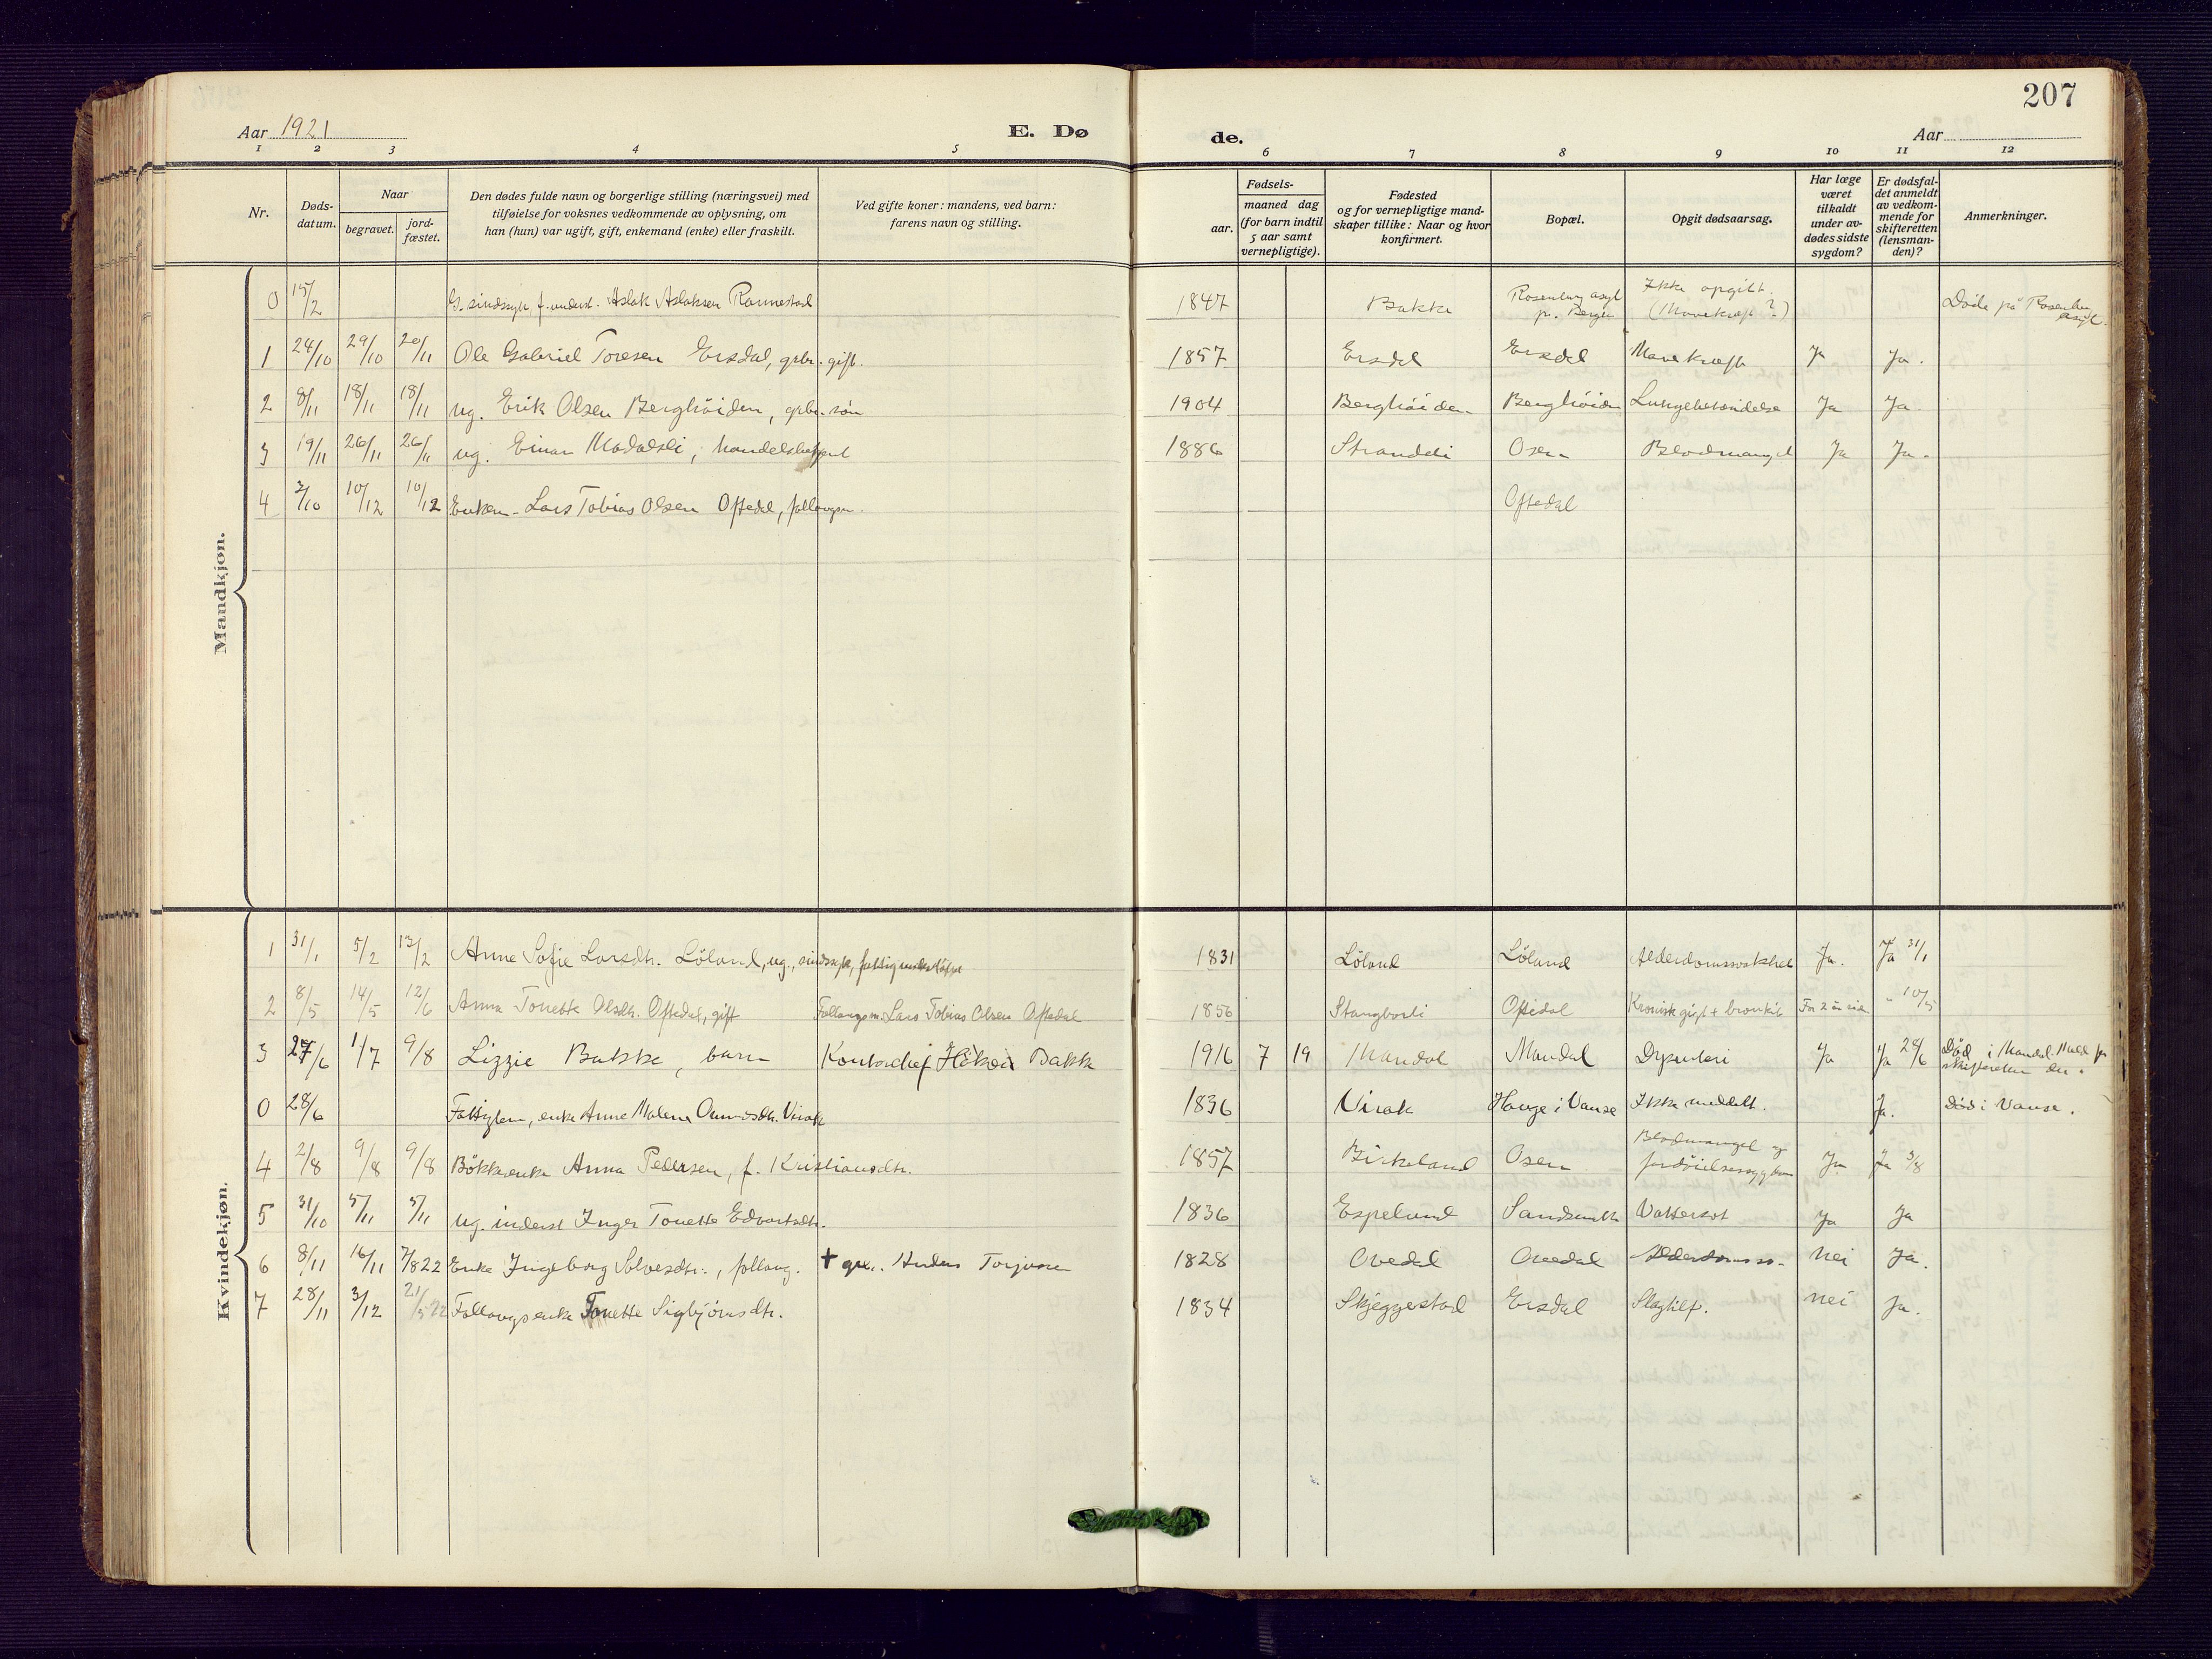 207
Aar 1921
E. Dø
de.
Aar
1 2 3 4 5 6 7 8 9 10 11 12
Nr.
Døds-
datum.
Naar
begravet.
jord-
fæstet.
Den dødes fulde navn og borgerlige stilling (næringsvei) med
tilføielse for voksnes vedkommende av oplysning, om
han (hun) var ugift, gift, enkemand (enke) eller fraskilt.
Ved gifte koner: mandens, ved barn:
farens navn og stilling.
Fødsels-
aar.
maaned dag
(for barn indtil
5 aar samt
vernepligtige).
Fødested
og for vernepligtige mand-
skaper tillike: Naar og hvor
konfirmert.
Bopæl.
Opgit dødsaarsag.
Har læge
været
tilkaldt
under av-
dødes sidste
sygdom?
Er dødsfal-
det anmeldt
av vedkom-
mende for
skifteretten
(lensman-
den)?
Anmerkninger.
Mandkjøn.
0 15/2 G. sindssyk, f. underst. Aslak Aslaksen Rannestad 1847 Bakke Rosenberg asyl pr. Bergen Ikke opgitt. (Mavekræft?) Døde på Rosenbg asyl.
1 24/10 29/10 20/11 Ole Gabriel Toresen Ersdal, grbr. gift. 1857 Ersdal Ersdal Mavekræft Ja Ja.
2 8/11 18/11 18/11 ug. Erik Olsen Berghöiden, grbr. søn 1904 Berghöiden Berghöiden Lungebetændelse Ja Ja.
3 19/11 26/11 26/11 ug. Einar Modalsli, handelsbetjent 1886 Strandli Osen Blodmangel Ja Ja.
4 3/10 10/12 10/12 Enkem. Lars Tobias Olsen Oftedal, follaugsm. Oftedal
Kvindekjøn.
1 31/1 5/2 13/2 Anne Sofie Larsdtr. Löland, ug., sindssyk, fattigunderstöttet 1831 Löland Löland Alderdomssvakhet Ja. Ja 31/1
2 8/5 14/5 12/6 Anna Tonette Olsdtr. Oftedal, gift Follaugsm. Lars Tobias Olsen Oftedal 1856 Stangborli Oftedal Kronisk gigt + bronkit For 2 år siden " 10/5
3 27/6 1/7 9/8 Lizzie Bakke, barn Kontorchef Håkon Bakke 1916 7 19 Mandal Mandal Dysenteri Ja Ja 28/6 Död i Mandal. Meld. for skifteretten der.
0 28/6 Fattiglem, enke Anne Malene Omundsdtr. Virak 1836 Virak Hauge i Vanse Ikke meddelt. Ja. Död i Vanse.
4 2/8 9/8 9/8 Bökkerenke Anna Pedersen, f. Kristiansdtr. 1857 Birkeland Osen Blodmangel og fordöielsessygdom Ja Ja 3/8
5 31/10 5/11 5/11 ug. inderst Inger Tonette Edvartsdtr. 1836 Espelund Sandsmth Vattersot Ja Ja
6 8/11 16/11 7/8 22 Enke Ingeborg Salvesdtr., follaug. + grbr. Anders Torjusen 1828 Ovedal Ovedal Alderdomssv. nei Ja.
7 28/11 3/12 21/5 22 Follaugsenke Tonette Sigbjörnsdtr. 1834 Skjeggestad Ersdal Slagtilf. nei Ja.